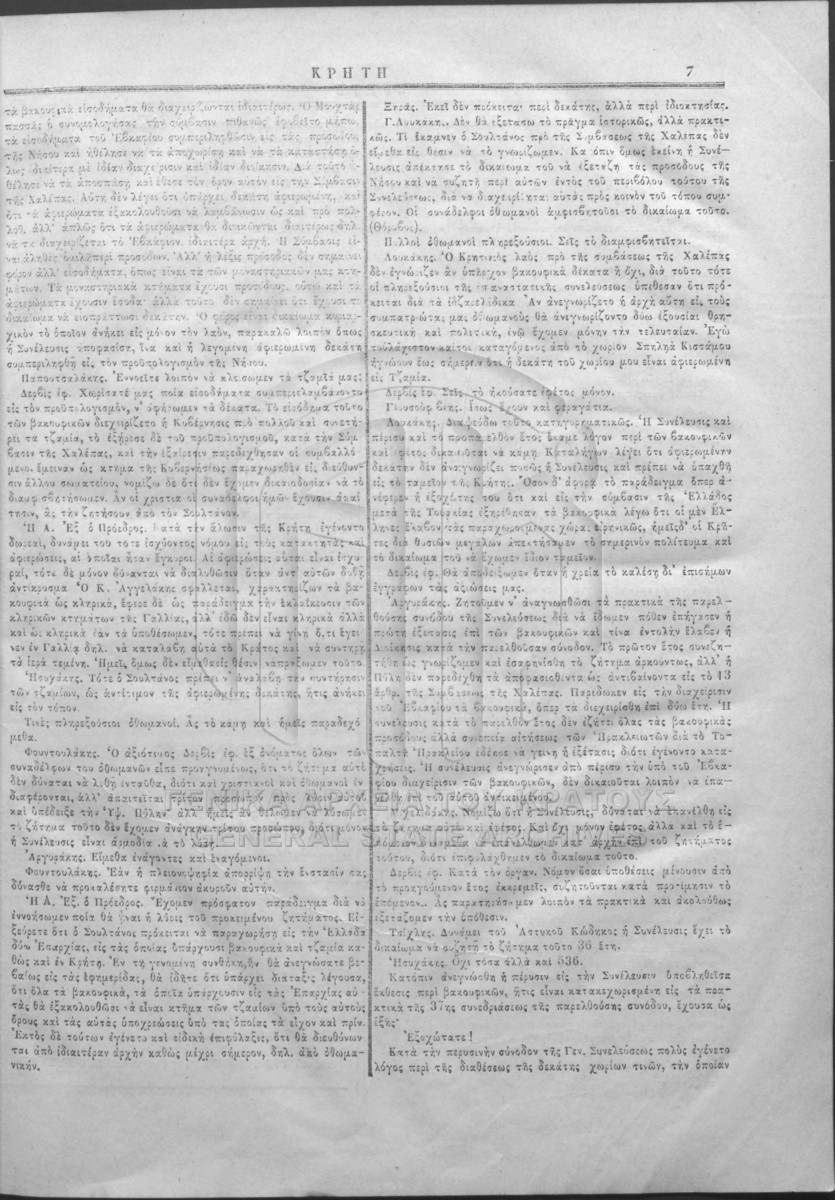 ΚΡΗΤΗ
7
τὰ βακουφικὰ εἰσοδήματα θὰ διαχειρίζωνται ἰδιαιτέρως. Ὁ Μουχτὰρ
πασσᾶς ὁ συνομολογήσας τὴν σύμβασιν πιθανῶς ἐφοβεῖτο μήπως
τὰ εἰσοδήματα τοῦ Ἐβκαφίου συμπεριληφθῶσιν εἰς τὰς προσόδους
τῆς Νήσου καὶ ἠθέλησε νὰ τὰ ἀποχωρίσῃ καὶ νὰ τὰ καταστήσῃ
ἰδιαίτερα μὲ ἰδίαν διαχείρισιν καὶ ἰδίαν διοίκησιν. Διὰ τοῦτο ἠ-
θέλησε νὰ τὰ ἀποσπάσῃ καὶ ἔθεσε τὸν ὅρον αὐτὸν εἰς τὴν Σύμβασιν
τῆς Χαλέπας. Αὕτη δὲν λέγει ὅτι ὑπάρχει δεκάτη ἀφιερωμένη, καὶ
ὅτι τὰ ἀφιερώματα ἐξακολουθοῦσι νὰ λαμβάνωσιν ὡς καὶ πρὸ πολ-
λοῦ, ἀλλ' ἁπλῶς ὅτι τὰ ἀφιερώματα θὰ διοικῶνται ἰδιαιτέρως δηλ.
νὰ τὰ διαχειρίζεται τὸ Ἐβκάφιον, ἰδιαιτέρα ἀρχή. Ἡ Σύμβασις εἶ-
ναι ἀληθὲς ὁμιλεῖ περὶ προσόδων. Ἀλλ' ἡ λέξις πρόσοδος δὲν σημαίνει
φόρον ἀλλ' εἰσοδήματα, ὅπως εἶναι τὰ τῶν μοναστηριακῶν μας κτη-
μάτων. Τὰ μοναστηριακὰ κτήματα ἔχουσι προσόδους, οὕτω καὶ τὰ
ἀφιερώματα ἔχουσιν ἔσοδα· ἀλλὰ τοῦτο δὲν σημαίνει ὅτι ἔχουσι τὸ
δικαίωμα νὰ εἰσπράττωσι δεκάτην. Ὁ φόρος εἶναι δικαίωμα κυριαρ-
χικὸν τὸ ὁποῖον ἀνήκει εἰς μόνον τὸν λαόν, παρακαλῶ λοιπὸν ὅπως
ἡ Συνέλευσις ἀποφασίσῃ, ἵνα καὶ ἡ λεγομένη ἀφιερωμένη δεκάτη
συμπεριληφθῇ εἰς τὸν προϋπολογισμὸν τῆς Νήσου.
Παπουτσαλάκης. Ἐννοεῖτε λοιπὸν νὰ κλείσωμεν τὰ τζαμία μας;
Δερβὶς ἐφ. Χωρίσατέ μας ποῖα εἰσοδήματα συμπεριελαμβάνοντο
εἰς τὸν προϋπολογισμόν, ν' ἀφήσωμεν τὰ δέκατα. Τὸ εἰσόδημα τοῦτο
τῶν βακουφικῶν διεχειρίζετο ἡ Κυβέρνησις πρὸ πολλοῦ καὶ συνετή-
ρει τὰ τζαμία, τὸ ἐξῄρεσε δὲ τοῦ προϋπολογισμοῦ, κατὰ τὴν Σύμ-
βασιν τῆς Χαλέπας, καὶ τὴν ἐξαίρεσιν παρεδέχθησαν οἱ συμβαλλό-
μενοι ἔμειναν ὡς κτῆμα τῆς Κυβερνήσεως παραχωρηθὲν εἰς διεύθυν-
σιν ἄλλου σωματείου, νομίζω δὲ ὅτι δὲν ἔχομεν δικαιοδοσίαν νὰ τὸ
διαμφισβητήσωμεν. Ἂν οἱ χριστιανοὶ συνάδελφοι ἡμῶν ἔχουσιν ἀπαί-
τησιν, ἂς τὴν ζητήσουν ἀπὸ τὸν Σουλτάνον.
Ἡ Α. Ἐξ ὁ Πρόεδρος. Κατὰ τὴν ἅλωσιν τῆς Κρήτης ἐγένοντο
δωρεαί, δυνάμει τοῦ τότε ἰσχύοντος νόμου εἰς τοὺς κατακτητὰς καὶ
ἀφιερώσεις, αἱ ὁποῖαι ἦσαν ἔγκυροι. Αἱ ἀφιερώσεις αὗται εἶναι ἰσχυ-
ραί, τότε δὲ μόνον δύνανται νὰ διαλυθῶσιν ὅταν ἀντ' αὐτῶν δοθῇ
ἀντίκρυσμα Ὁ Κ. Ἀγγελάκης σφάλλεται, χαρακτηρίζων τὰ βα-
κουφικὰ ὡς κληρικά, ἔφερε δὲ ὡς παράδειγμα τὴν ἐκλαΐκευσιν τῶν
κληρικῶν κτημάτων τῆς Γαλλίας, ἀλλ' ἐδῶ δὲν εἶναι κληρικὰ ἀλλὰ
καὶ ὡς κληρικὰ ἐὰν τὰ ὑποθέσωμεν, τότε πρέπει νὰ γίνῃ ὅ,τι ἔγει-
νεν ἐν Γαλλίᾳ δηλ. νὰ καταλάβῃ αὐτὰ τὸ Κράτος καὶ νὰ συντηρῇ
τὰ ἱερὰ τεμένη. Ἡμεῖς, ὅμως δὲν εἴμεθα εἰς θέσιν νὰ πράξωμεν τοῦτο.
Ἡσυχάκης. Τότε ὁ Σουλτάνος πρέπει ν' ἀναλάβῃ τὴν συντήρησιν
τῶν τζαμίων, ὡς ἀντίτιμον τῆς ἀφιερωμένης δεκάτης, ἥτις ἀνήκει
εἰς τὸν τόπον.
Τινὲς πληρεξούσιοι ὀθωμανοί. Ἂς τὸ κάμῃ καὶ ἡμεῖς παραδεχό-
μεθα.
Φουντουλάκης. Ὁ ἀξιότιμος Δερβὶς ἐφ. ἐξ ὀνόματος ὅλων τῶν
συναδέλφων του ὀθωμανῶν εἶπε προηγουμένως, ὅτι τὸ ζήτημα αὐτὸ
δὲν δύναται νὰ λυθῇ ἐνταῦθα, διότι καὶ χριστιανοὶ καὶ ὀθωμανοὶ ἐν-
διαφέρονται, ἀλλ' ἀπαιτεῖται τρίτον πρόσωπον πρὸς λύσιν αὐτοῦ
καὶ ὑπέδειξε τὴν Ὑψ. Πύλην· ἀλλ' ἡμεῖς ἂν θέλωμεν νὰ λύσωμεν
τὸ ζήτημα τοῦτο δὲν ἔχομεν ἀνάγκην τρίτου προσώπου, διότι μόνον
ἡ Συνέλευσις εἶναι ἁρμοδία νὰ τὸ λύσῃ.
Ἀργυράκης. Εἴμεθα ἐνάγοντες καὶ ἐναγόμενοι.
Φουντουλάκης. Ἐὰν ἡ πλειονοψηφία ἀπορρίψῃ τὴν ἔνστασίν σας
δύνασθε νὰ προκαλέσητε φιρμάνιον ἀκυροῦν αὐτήν.
Ἡ Α. Ἐξ. ὁ Πρόεδρος. Ἔχομεν πρόσφατον παράδειγμα διὰ νὰ
ἐννοήσωμεν ποία θὰ ἦναι ἡ λύσις τοῦ προκειμένου ζητήματος. Ἐξ-
εύρετε ὅτι ὁ Σουλτάνος πρόκειται νὰ παραχωρήσῃ εἰς τὴν Ἑλλάδα
δύω Ἐπαρχίας, εἰς τὰς ὁποίας ὑπάρχουσι βακουφικὰ καὶ τζαμία κα-
θὼς καὶ ἐν Κρήτῃ. Ἐν τῇ γενομένῃ συνθήκῃ, ἣν θὰ ἀνεγνώσατε βε-
βαίως εἰς τὰς ἐφημερίδας, θὰ ἴδητε ὅτι ὑπάρχει διάταξις λέγουσα,
ὅτι ὅλα τὰ βακουφικά, τὰ ὁποῖα ὑπάρχουσιν εἰς τὰς Ἐπαρχίας αὐ-
τὰς θὰ ἐξακολουθῶσι νὰ εἶναι κτῆμα τῶν τζαμίων ὑπὸ τοὺς αὐτοὺς
ὅρους καὶ τὰς αὐτὰς ὑποχρεώσεις ὑπὸ τὰς ὁποίας τὰ εἶχον καὶ πρίν.
Ἐκτὸς δὲ τούτων ἐγένετο καὶ εἰδικὴ ἐπιφύλαξις, ὅτι θὰ διευθύνων-
ται ἀπὸ ἰδιαιτέραν ἀρχὴν καθὼς μέχρι σήμερον, δηλ. ἀπὸ ὀθωμα-
νικήν.
Ξηρᾶς. Ἐκεῖ δὲν πρόκειται περὶ δεκάτης, ἀλλὰ περὶ ἰδιοκτησίας.
Γ. Λουκάκης. Δὲν θὰ ἐξετάσω τὸ πρᾶγμα ἱστορικῶς, ἀλλὰ πρακτι-
κῶς. Τί ἔκαμνεν ὁ Σουλτάνος πρὸ τῆς Συμβάσεως τῆς Χαλέπας δὲν
εἴμεθα εἰς θέσιν νὰ τὸ γνωρίζωμεν. Κατόπιν ὅμως ἐκείνη ἡ Συνέ-
λευσις ἀπέκτησε τὸ δικαίωμα τοῦ νὰ ἐξετάζῃ τὰς προσόδους τῆς
Νήσου καὶ νὰ συζητῇ περὶ αὐτῶν ἐντὸς τοῦ περιβόλου τούτου τῆς
Συνελεύσεως, διὰ νὰ διαχειρίηται αὐτὰς πρὸς κοινὸν τοῦ τόπου συμ-
φέρον. Οἱ συνάδελφοι ὀθωμανοὶ ἀμφισβητοῦσι τὸ δικαίωμα τοῦτο.
(Θόρυβος).
Πολλοὶ ὀθωμανοὶ πληρεξούσιοι. Σεῖς τὸ διαμφισβητεῖται.
Λουκάκης. Ὁ Κρητικὸς λαὸς πρὸ τῆς συμβάσεως τῆς Χαλέπας
δὲν ἐγνώριζεν ἂν ὑπῆρχον βακουφικὰ δέκατα ἢ ὄχι, διὰ τοῦτο τότε
οἱ πληρεξούσιοι τῆς ἐπαναστατικῆς συνελεύσεως ὑπέθεσαν ὅτι πρό-
κειται διὰ τὰ ἰδζαρελίδικα Ἂν ἀνεγνωρίζετο ἡ ἀρχὴ αὕτη εἰς τοὺς
συμπατριώτας μας ὀθωμανοὺς θὰ ἀνεγνωρίζοντο δύω ἐξουσίαι θρη-
σκευτικὴ καὶ πολιτική, ἐνῷ ἔχομεν μόνην τὴν τελευταίαν. Ἐγὼ
τοὐλάχιστον καίτοι καταγόμενος ἀπὸ τὸ χωρίον Σπηληὰ Κισσάμου
ἠγνόουν ἕως σήμερον ὅτι ἡ δεκάτη τοῦ χωρίου μου εἶναι ἀφιερωμένη
εἰς Τζαμία.
Δερβὶς ἐφ. Σεῖς τὸ ἠκούσατε ἐφέτος μόνον.
Γιουσοὺφ βέης. Ἴσως ἔχουν καὶ φεραγάτια.
Λουκάκης. Διαψεύδω τοῦτο κατηγορηματικῶς. Ἡ Συνέλευσις καὶ
πέρυσι καὶ τὸ προπαρελθὸν ἔτος ἔκαμε λόγον περὶ τῶν βακουφικῶν
καὶ ἐφέτος δικαιοῦται νὰ κάμῃ. Καταλήγων λέγει ὅτι ἀφιερωμένην
δεκάτην δὲν ἀναγνωρίζει ποσῶς ἡ Συνέλευσις καὶ πρέπει νὰ ὑπαχθῇ
εἰς τὸ ταμεῖον τῆς Κρήτης. Ὅσον δ' ἀφορᾷ τὸ παράδειγμα ὅπερ ἀ-
νέφερεν ἡ ἐξοχότης του ὅτι καὶ εἰς τὴν σύμβασιν τῆς Ἑλλάδος
μετὰ τῆς Τουρκίας ἐξῃρέθησαν τὰ βακουφικὰ λέγω ὅτι οἱ μὲν Ἕλ-
ληνες ἔλαβον τὰς παραχωρουμένας χώρας εἰρηνικῶς, ἡμεῖς δ' οἱ Κρῆ-
τες διὰ θυσιῶν μεγάλων ἀπεκτήσαμεν τὸ σημερινὸν πολίτευμα καὶ
τὸ δικαίωμα τοῦ νὰ ἔχωμεν ἴδιον ταμεῖον.
Δερβὶς ἐφ. Θὰ ἀποδείξωμεν ὅταν ἡ χρεία τὸ καλέσῃ δι' ἐπισήμων
ἐγγράφων τὰς ἀξιώσεις μας.
Ἀργυράκης. Ζητοῦμεν ν' ἀναγνωσθῶσι τὰ πρακτικὰ τῆς παρελ-
θούσης συνόδου τῆς Συνελεύσεως διὰ νὰ ἴδωμεν πόθεν ἐπήγασεν ἡ
πρώτη ἐξέτασις ἐπὶ τῶν βακουφικῶν καὶ τίνα ἐντολὴν ἔλαβεν ἡ
Διοίκησις κατὰ τὴν παρελθοῦσαν σύνοδον. Τὸ πρῶτον ἔτος συνεζη-
τήθη ὡς γνωρίζομεν καὶ ἐσαφηνίσθη τὸ ζήτημα ἀρκούντως, ἀλλ' ἡ
Πύλη δὲν παρεδέχθη τὰ ἀποφασισθέντα ὡς ἀντιβαίνοντα εἰς τὸ 13
ἄρθρ. τῆς Συμβάσεως τῆς Χαλέπας. Παρέδωκεν εἰς τὴν διαχείρισιν
τοῦ Ἐβκαφίου τὰ βακουφικά, ὅπερ τὰ διεχειρίσθη ἐπὶ δύω ἔτη. Ἡ
συνέλευσις κατὰ τὸ παρελθὸν ἔτος δὲν ἐζήτει ὅλας τὰς βακουφικὰς
προσόδους ἀλλὰ συνεπείᾳ αἰτήσεως τῶν Ἡρακλειωτῶν διὰ τὸ Το-
παλτῆ Ἡρακλείου ἐδέησε νὰ γείνῃ ἡ ἐξέτασις διότι ἐγένοντο κατα-
χρήσεις. Ἡ συνέλευσις ἀνεγνώρισεν ἀπὸ πέρυσι τὴν ὑπὸ τοῦ Ἐβκα-
φίου διαχείρισιν τῶν βακουφικῶν, δὲν δικαιοῦται λοιπὸν νὰ ἐπα-
νέλθῃ ἐπὶ τοῦ αὐτοῦ ἀντικειμένου.
Νομίζω ὅτι ἡ Συνέλευσις, δύναται νὰ ἐπανέλθῃ εἰς
τὸ ζήτημα αὐτὸ καὶ ἐφέτος. Καὶ ὄχι μόνον ἐφέτος, ἀλλὰ καὶ τὸ ἑ-
πόμενον δυνάμεθα νὰ ἐπανέλθωμεν κατ' ἀρχὴν ἐπὶ τοῦ ζητήματος
τούτου, διότι ἐπιφυλάχθημεν τὸ δικαίωμα τοῦτο.
Δερβὶς ἐφ. Κατὰ τὸν ὀργαν. Νόμον ὅσαι ὑποθέσεις μένουσιν ἀπὸ
τὸ προηγούμενον ἔτος ἐκκρεμεῖς, συζητοῦνται κατὰ προτίμησιν τὸ
ἑπόμενον. Ἂς παρατηρήσωμεν λοιπὸν τὰ πρακτικὰ καὶ ἀκολούθως
ἐξετάζομεν τὴν ὑπόθεσιν.
Τσίχλης. Δυνάμει τοῦ Ἀστυκοῦ Κώδηκος ἡ Συνέλευσις ἔχει τὸ
δικαίωμα νὰ συζητῇ τὸ ζήτημα τοῦτο 36 ἔτη.
Ἡσυχάκης. Ὄχι τόσα ἀλλὰ καὶ 536.
Κατόπιν ἀνεγνώσθη ἡ πέρυσιν εἰς τὴν Συνέλευσιν ὑποβληθεῖσα
ἔκθεσις περὶ βακουφικῶν, ἥτις εἶναι κατακεχωρισμένη εἰς τὰ πρα-
κτικὰ τῆς 37ης συνεδριάσεως τῆς παρελθούσης συνόδου, ἔχουσα ὡς
ἑξῆς·
Ἐξοχώτατε!
Κατὰ τὴν περυσινὴν σύνοδον τῆς Γεν. Συνελεύσεως πολὺς ἐγένετο
λόγος περὶ τῆς διαθέσεως τῆς δεκάτης χωρίων τινῶν, τὴν ὁποίαν
ΓΕΝΙΚΑ ΑΡΧΕΙΑ ΤΟΥ ΚΡΑΤΟΥΣ
GENERAL STATE ARCHIVES